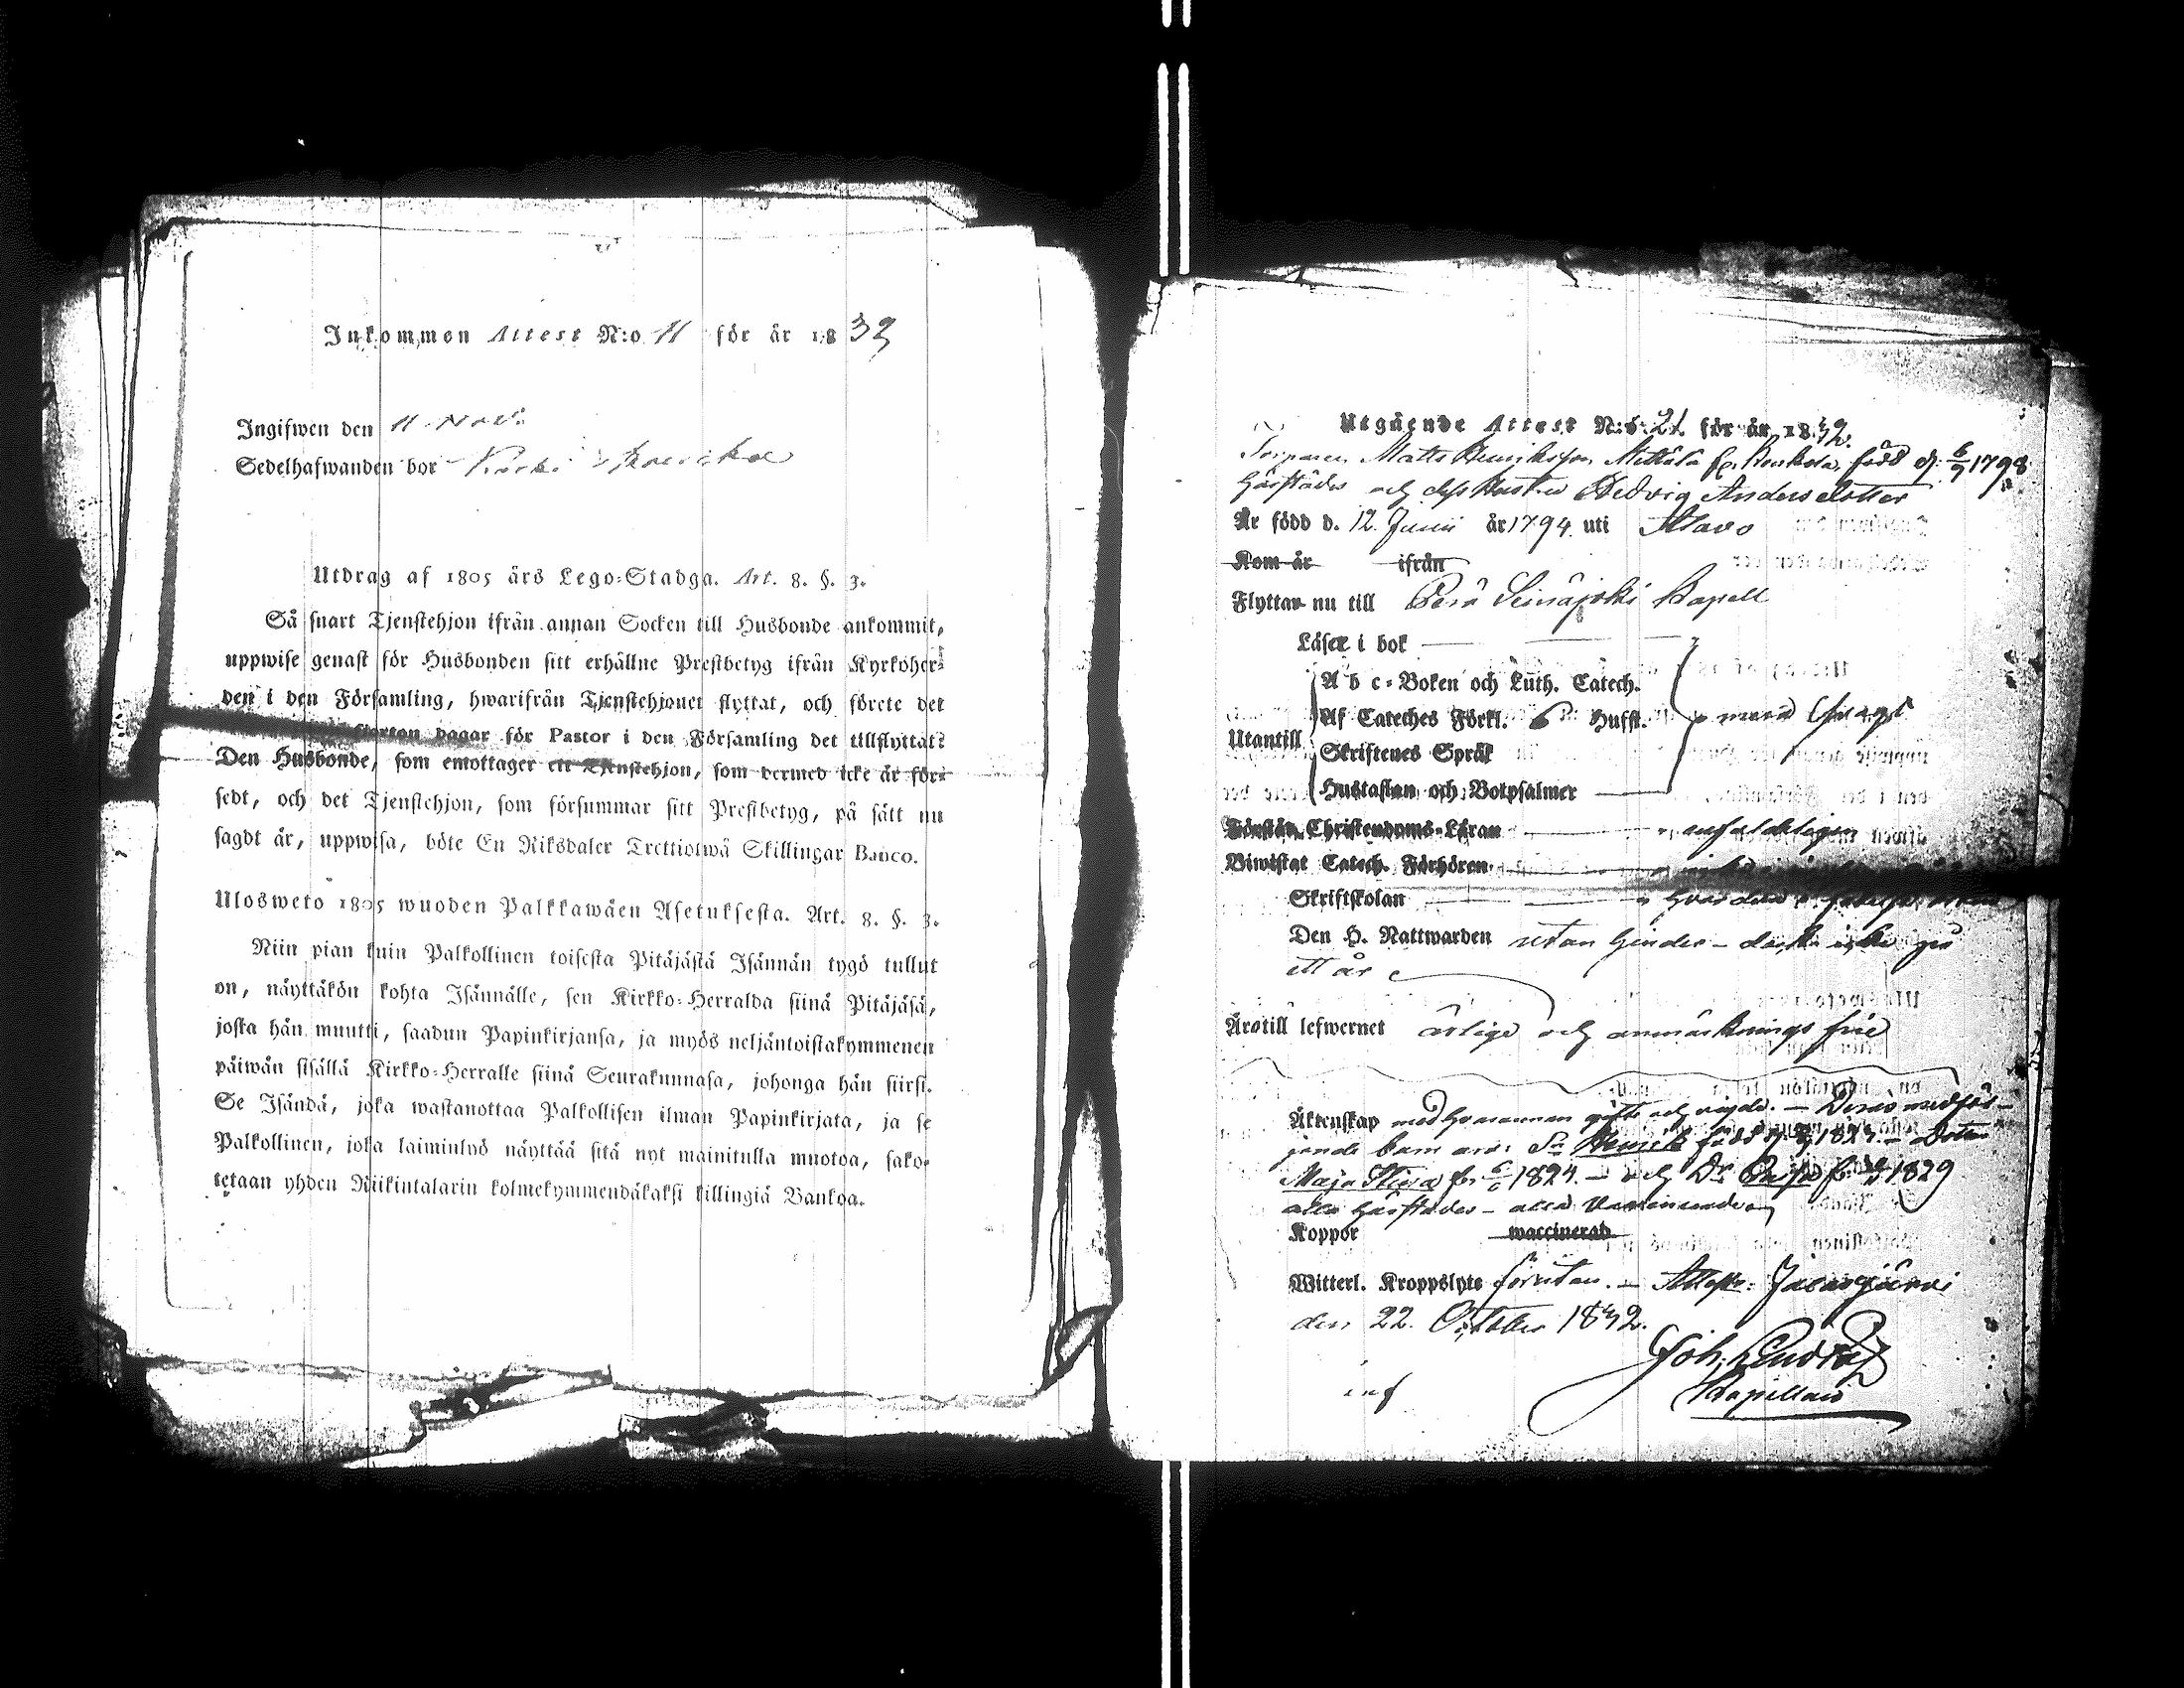 Inkommen Attest N:o 11 för år 1832
Ingifwen den 11 Nov.
Sedelhafwanden bor
Utdrag af 1805 års Lego-Stadga. Art. 8. §. 3.
Så snart Tjenstehjon ifrån annan Socken till Husbonde ankommit,
uppwise genast för Husbonden sitt erhållne Prestbetyg ifrån Kyrkoher-
den i den Församling, hwarifrån Tjenstehjonet flyttat, och förete det
fjorton dagar för Pastor i den Församling det tillflyttat:
Den Husbonde, som emottager ett Tjenstehjon, som dermed icke är för-
sedt, och det Tjenstehjon, som försummar sitt Prestbetyg, på sätt nu
sagdt är, uppwisa, böte En Riksdaler Trettiotwå Skillingar Banco.
Ulosweto 1805 wuoden Palkkawäen Asetuksesta. Art. 8. §. 3.
Niin pian kuin Palkollinen toisesta Pitäjästä Isännän tygö tullut
on, näyttäkön kohta Isännälle, sen Kirkko-Herralda siinä Pitäjäsä,
josta hän muutti, saadun Papinkirjansa, ja myös neljäntoistakymmenen
päiwän sisällä Kirkko-Herralle siinä Seurakunnasa, johonga hän siirsi.
Se Isändä, joka wastanottaa Palkollisen ilman Papinkirjata, ja se
Palkollinen, joka laiminlyö näyttää sitä nyt mainitulla muotoa, sako-
tetaan yhden Riikintalarin kolmekymmendäkaksi killingiä Bankoa.
Utgående Attest N:o 21. för år 1832.
Matts Henriksson född d. 6/9 1798
härstädes och dess Hustru Hedvig Andersdotter
Är född d. 12 Junii år 1794 uti Alavo
Kom år ifrån
Flyttar nu till Perä Seinäjoki Kapell
Läser i bok
Utantill
A b c-Boken och Luth. Catech.
Af Cateches Förkl. 6 Hufst.
Skriftenes Språk
Hustaflan och Botpsalmer
svagt
Förstår Christendoms-Läran enfaldeligen
Biwistat Catech. Förhören
Skriftskolan
Den H. Nattwarden utan hinder
ett år
Är till lefwernet ärlige och anmärknings frie
Äktenskap med hvarannan gifte och vigde. – Deras medföl-
jande barn äro: Sn Henrik född 1822. – Dottren
Maja Stina f. 1824. – och Dr f. 1829
alla härstädes – alla Vaccinerade
Koppor waccinerad
Witterl. Kroppslyte förutan. –
den 22. October 1832.
Joh.
Kapellan
inf